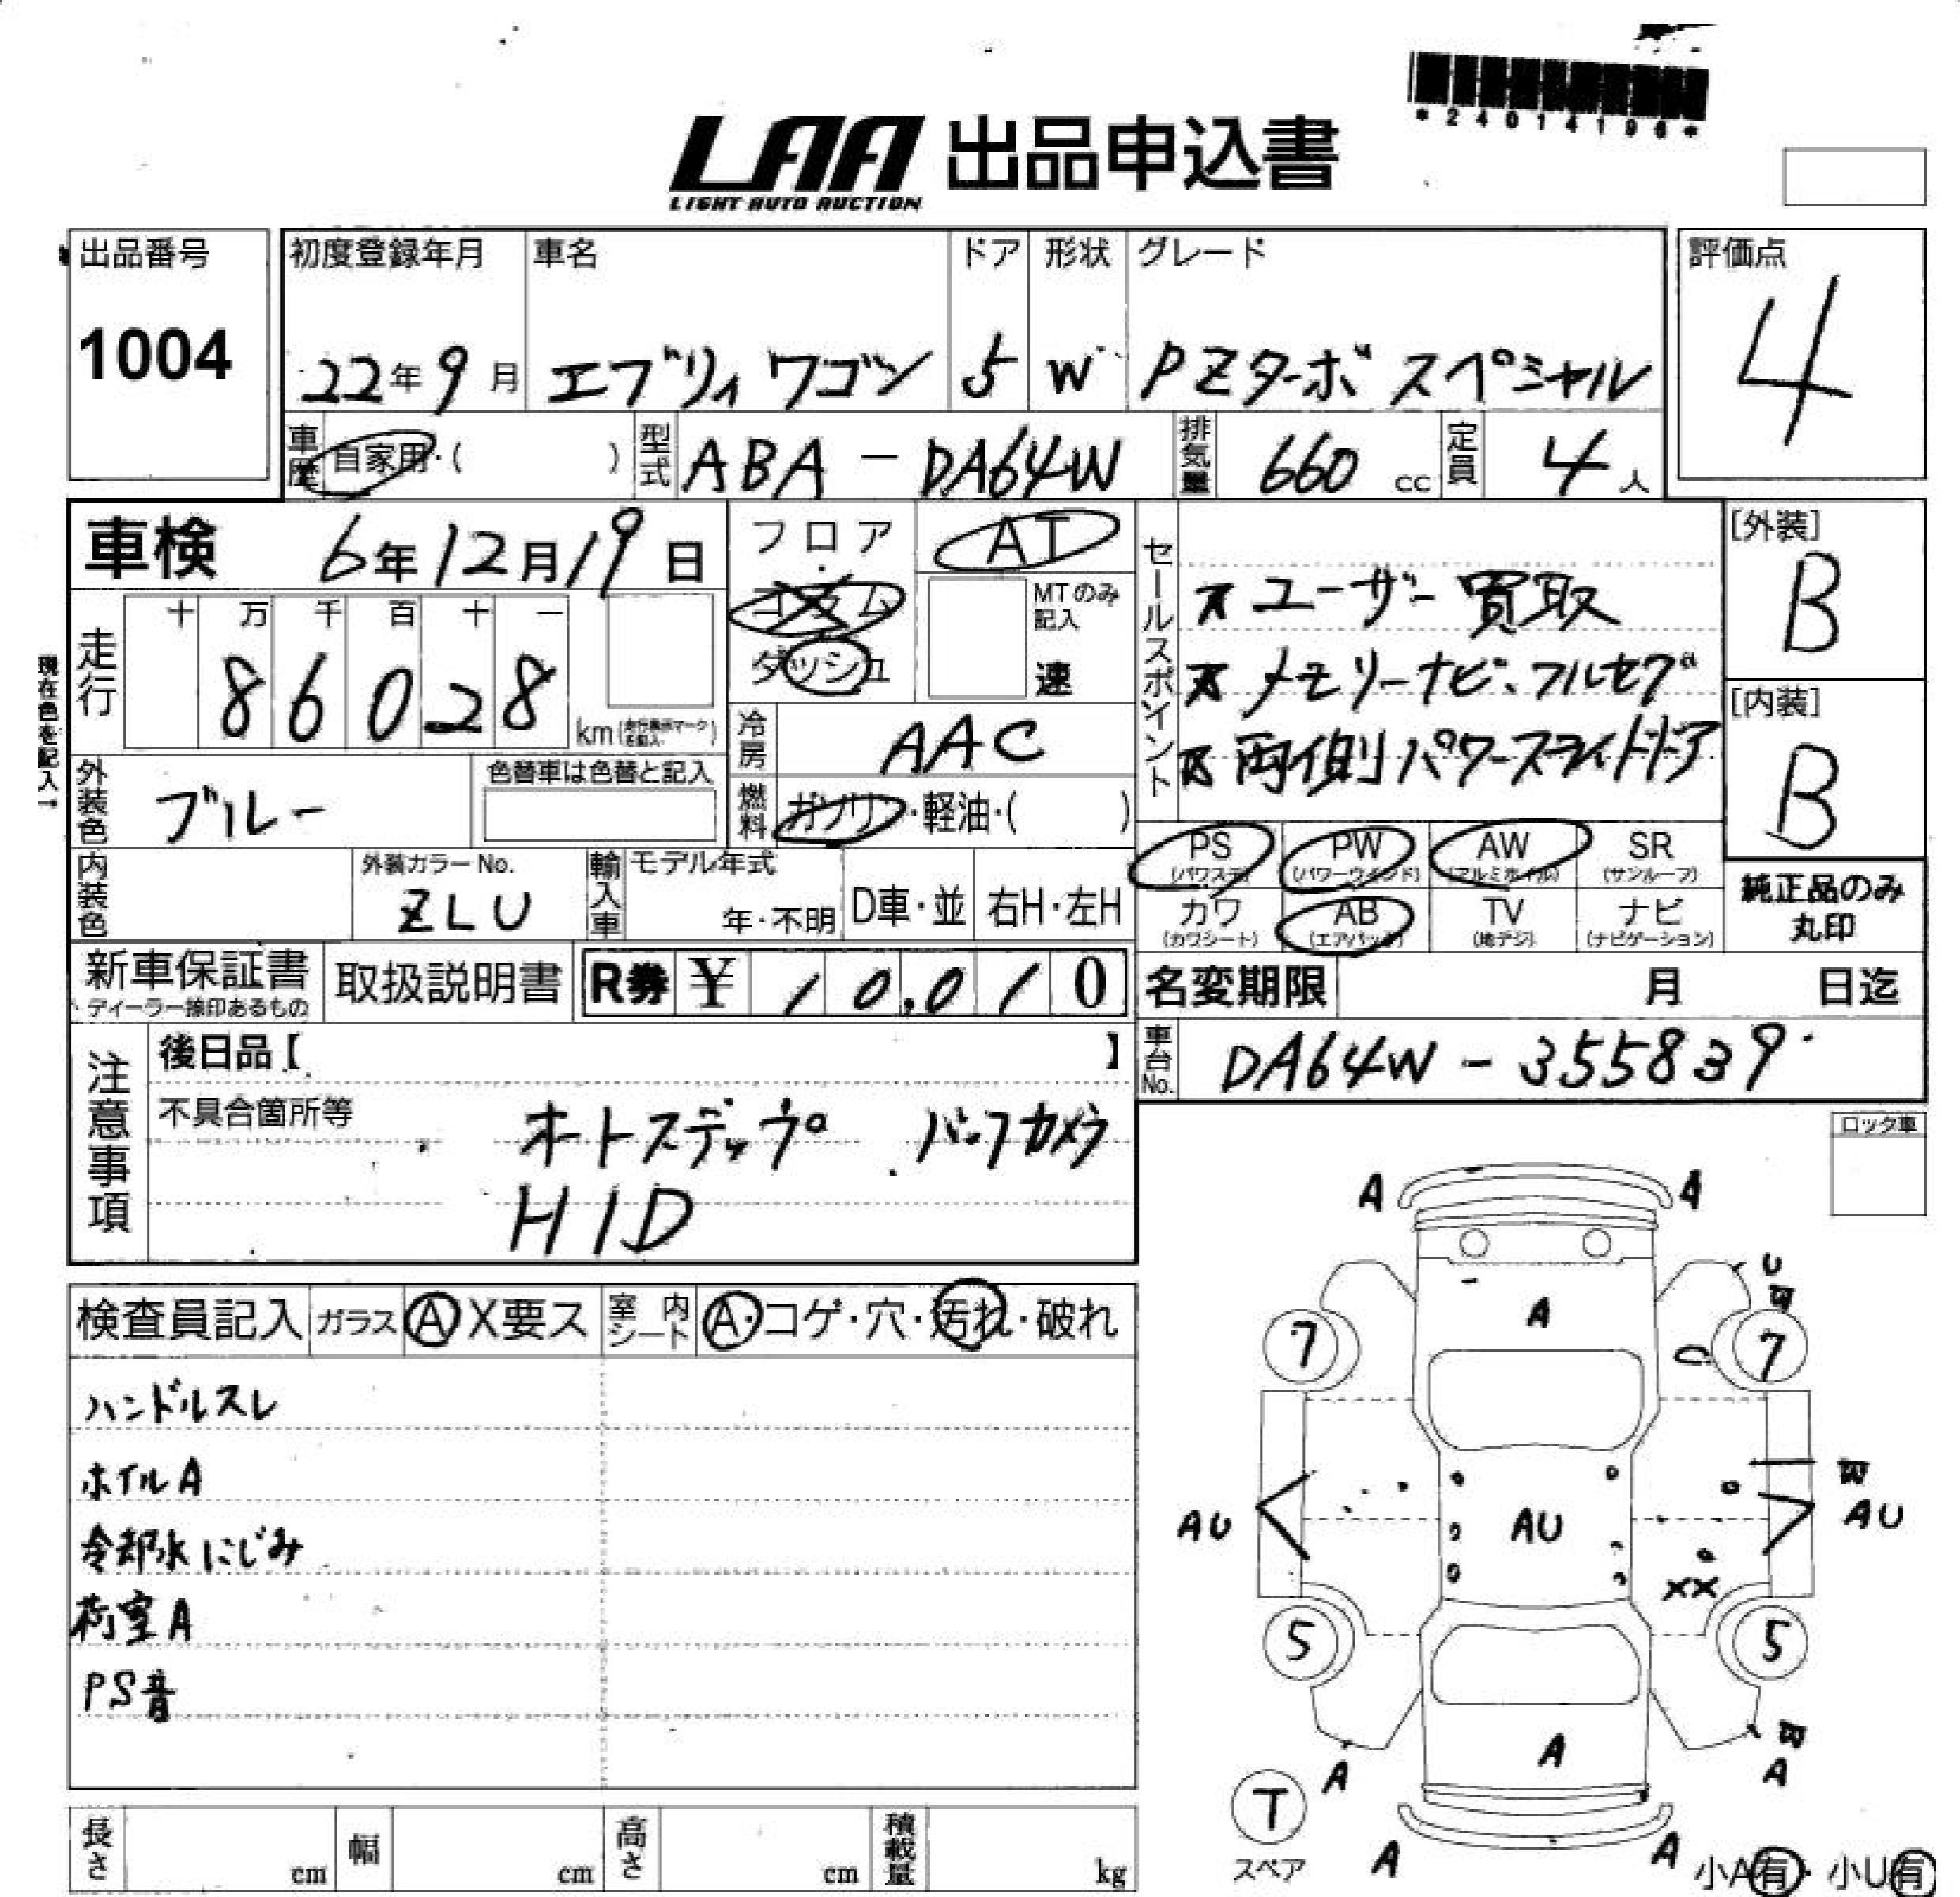 *24014196*
LAA 出品申込書
LIGHT AUTO AUCTION
出品番号 初度登録年月 車名 ドア 形状 グレード 評価点
1004 22年9月 エブリィ ワゴン 5 W PZターボ スペシャル 4
車歴 自家用・( ) 型式 ABA - DA64W 排気量 660 cc 定員 4 人
車検 6年12月19日 フロア AT セールスポイント [外装]
コラム MTのみ記入 ★ユーザー買取 B
ダッシュ 速 ★メモリーナビ・フルセグ
走行 十 万 千 百 十 一 [内装]
現在色を記入→
8 6 0 2 8 km(走行表示マークを記入) 冷房 AAC ★両側パワースライドドア B
外装色 ブルー 色替車は色替と記入 燃料 ガソリン・軽油・( )
PS(パワステ) PW(パワーウインド) AW(アルミホイル) SR(サンルーフ)
内装色 外装カラーNo. ZLU 輸入車 モデル年式 年・不明 D車・並 右H・左H
カワ(カワシート) AB(エアバック) TV(地デジ) ナビ(ナビゲーション) 純正品のみ丸印
新車保証書 ディーラー捺印あるもの 取扱説明書 R券 ¥ 10,010 名変期限 月 日迄
注意事項 後日品【 】 車台No. DA64W - 355839
不具合箇所等 オートステップ バックカメラ
HID
ロック車
検査員記入 ガラス A X要ス 室内シート A・コゲ・穴・汚れ・破れ
ハンドルスレ
ホイルA
冷却水にじみ
荷室A
PS音
A A
U
A
7 7
AU AU AU
XX
5 5
A A A
T
スペア
A A
小A有・小U有
長さ cm 幅 cm 高さ cm 積載量 kg